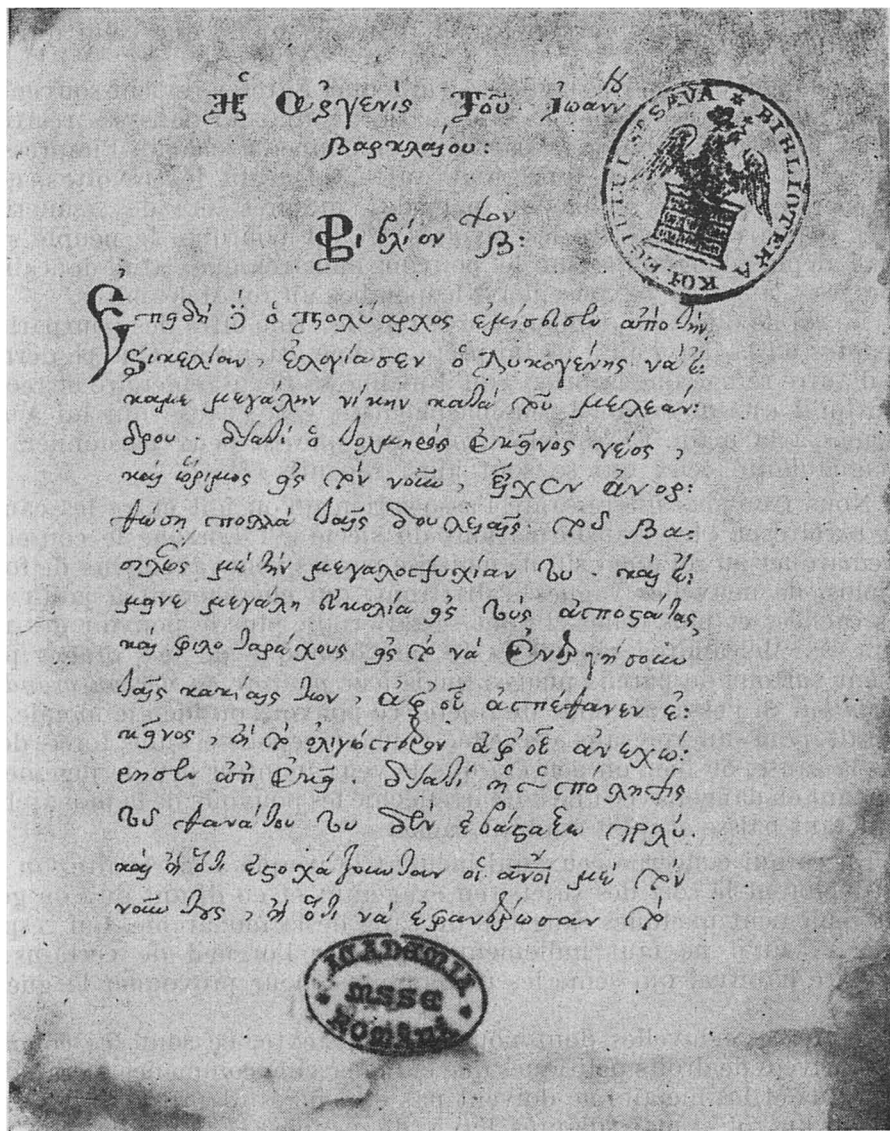 Ἡ Αργενὶς Τοῦ Ἰωάννου
Βαρκλαΐου:
Βιβλίον τον Β:
Ἐπειδὴ ὁ Πολύαρχος εμίσευσεν ἀπὸ τὴν
Σικελίαν, ἐλογίασεν ὁ Λυκογένης νὰ ἔ:
καμε μεγάλην νίκην κατὰ τοῦ μελεάν:
δρου διατὶ ὁ τολμηρὸς ἐκεῖνος νέος,
καὶ ὥριμος εἰς τὸν νοῦν, εἶχεν ἀνορ:
θώση πολλὰ ταῖς δουλειαῖς τοῦ Βα:
σιλέως μὲ τὴν μεγαλοψυχίαν του. καὶ ἔ:
μεινε μεγάλη εὐκολία εἰς τοὺς ἀποστάτας
καὶ φιλοταράχους εἰς τὸ νὰ
ταῖς κακίαις των, ἀφ' οὗ ἀπέθανεν ἐ:
κεῖνος, ἢ τὸ ὀλιγώτερον ἀφ' οὗ ἀνεχώ:
ρησεν ἀπ' ἐκεῖ. διατὶ ἡ ὑπόληψις
τοῦ θανάτου του δὲν ἐβάσταξε πολύ.
καὶ ἢ ὅτι ἐστοχάζουνταν οἱ ἄνοι μὲ τὸν
νοῦν τους, ἢ ὅτι νὰ ἐφανερώσαν τὸ
BIBLIOTEKA
ACADEMIA
MSSE
Română